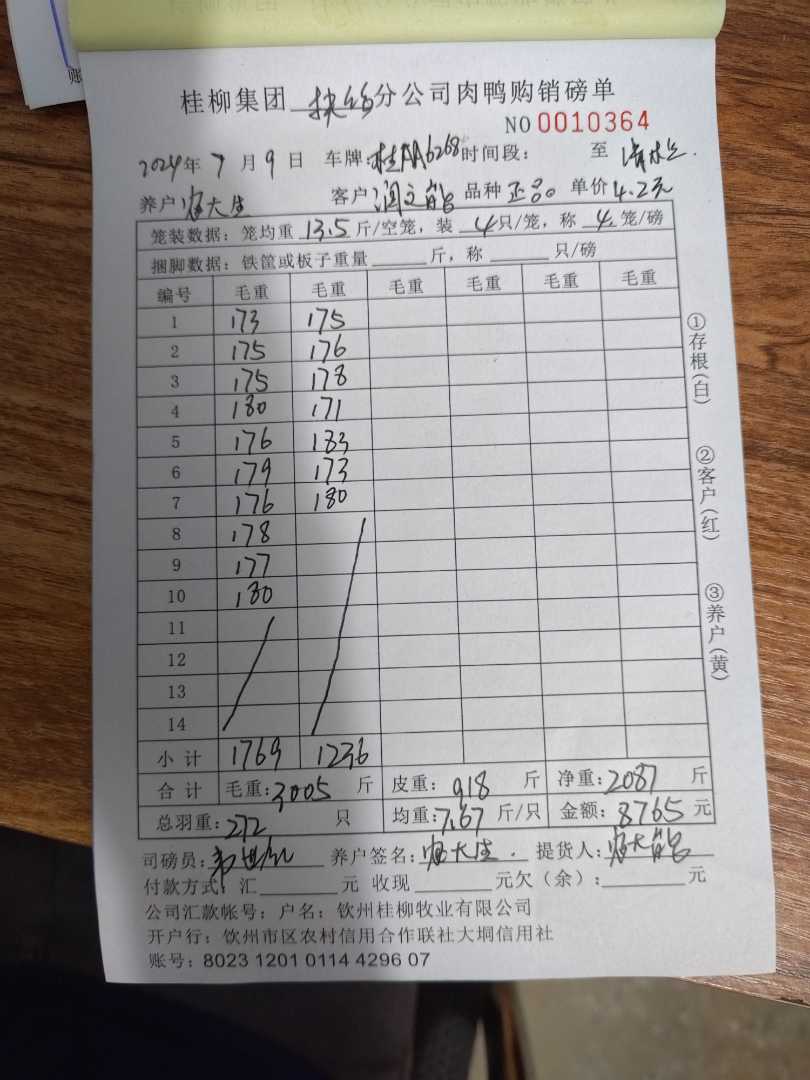 桂柳集团 分公司肉鸭购销磅单
NO 0010364
2024年 7 月 9 日 车牌:桂AA6268 时间段: 至
养户: 大生 客户: 润文 品种 正品 单价 4.2元
笼装数据: 笼均重 13.5 斤/空笼, 装 4只/笼, 称 4 笼/磅
捆脚数据: 铁筐或板子重量 斤, 称 只/磅
编号 毛重 毛重 毛重 毛重 毛重 毛重
1 173 175
2 175 176
3 175 178
4 180 171
5 176 183
6 179 173
7 176 180
8 178
9 177
10 180
11
12
13
14
小计 1769 1236
合计 毛重:3005 斤 皮重: 918 斤 净重:2087 斤
总羽重:272 只 均重:7.67 斤/只 金额: 8765 元
司磅员: 养户签名: 大生. 提货人:
付款方式: 汇 元 收现 元欠(余): 元
公司汇款帐号: 户名: 钦州桂柳牧业有限公司
开户行: 钦州市区农村信用合作联社大垌信用社
账号: 8023 1201 0114 4296 07
①存根(白)
②客户(红)
③养户(黄)